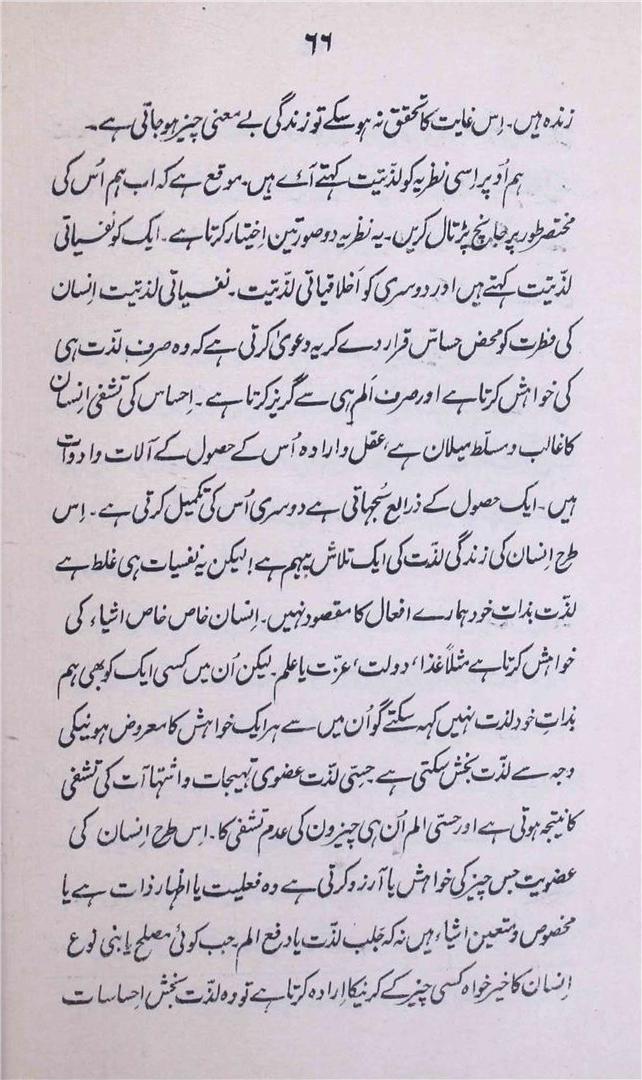 ۶۶
زندہ ہیں۔ اِس غایت کا تحقق نہ ہو سکے تو زندگی بے معنی چیز ہو جاتی ہے۔
ہم اُوپر اِسی نظریہ کو لذّتیت کہتے آئے ہیں۔ موقع ہے کہ اب ہم اُس کی
مختصر طور پر جانچ پڑتال کریں۔ یہ نظریہ دو صورتین اِختیار کرتا ہے۔ ایک کو نفسیاتی
لذتیت کہتے ہیں اور دوسری کو اَخلاقیاتی لذّتیت۔ نفسیاتی لذتیت اِنسان
کی فطرت کو محض حسّاس قرار دے کر یہ دعویٰ کرتی ہے کہ وہ صرف لذّت ہی
کی خواہش کرتا ہے اور صرف اَلم ہی سے گریز کرتا ہے۔ اِحساس کی تشفی اِنسان
کا غالب و مسلّط میلان ہے، عقل و ارادہ اُس کے حصول کے آلات و ادوات
ہیں۔ ایک حصول کے ذرایع سُجہاتی ہے دوسری اُس کی تکمیل کرتی ہے۔ اِس
طرح اِنسان کی زندگی لذّت کی ایک تلاش پیہم ہے! لیکن یہ نفسیات ہی غلط ہے
لذّت بذاتِ خود ہمارے افعال کا مقصود نہیں۔ اِنسان خاص خاص اشیاء کی
خواہش کرتا ہے مثلاً غذا، دولت، عزّت یا علم۔ لیکن اُن میں کسی ایک کو بھی ہم
بذاتِ خود لذت نہیں کہہ سکتے گو اُن میں سے ہر ایک خواہش کا معروض ہونیکی
وجہ سے لذّت بخش سکتی ہے۔ حِسّی لذّت عضوی تہیجات و اشتہاآت کی تشفی
کا نتیجہ ہوتی ہے اور حسّی الم اُن ہی چیزون کی عدم تشفی کا۔ اِس طرح اِنسان کی
عضویت جس چیز کی خواہش یا آرزو کرتی ہے وہ فعلیت یا اظہارِ ذات ہے یا
مخصوص و متعین اشیاء ہیں نہ کہ جلب لذّت یا دفع الم۔ جب کوئی مصلح یا بنی نوع
اِنسان کا خیر خواہ کسی چیز کے کرنیکا اِرادہ کرتا ہے تو وہ لذّت بخش اِحساسات